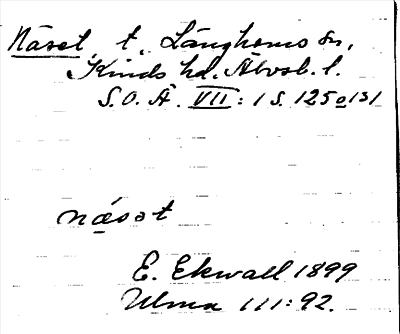 Näset, t., Länghems sn,
Kinds hd. Älvsb. l.
S.O.Ä. VII: 1 S. 125 o 131
näsat
E. Ekwall 1899
Ulma 111: 92.